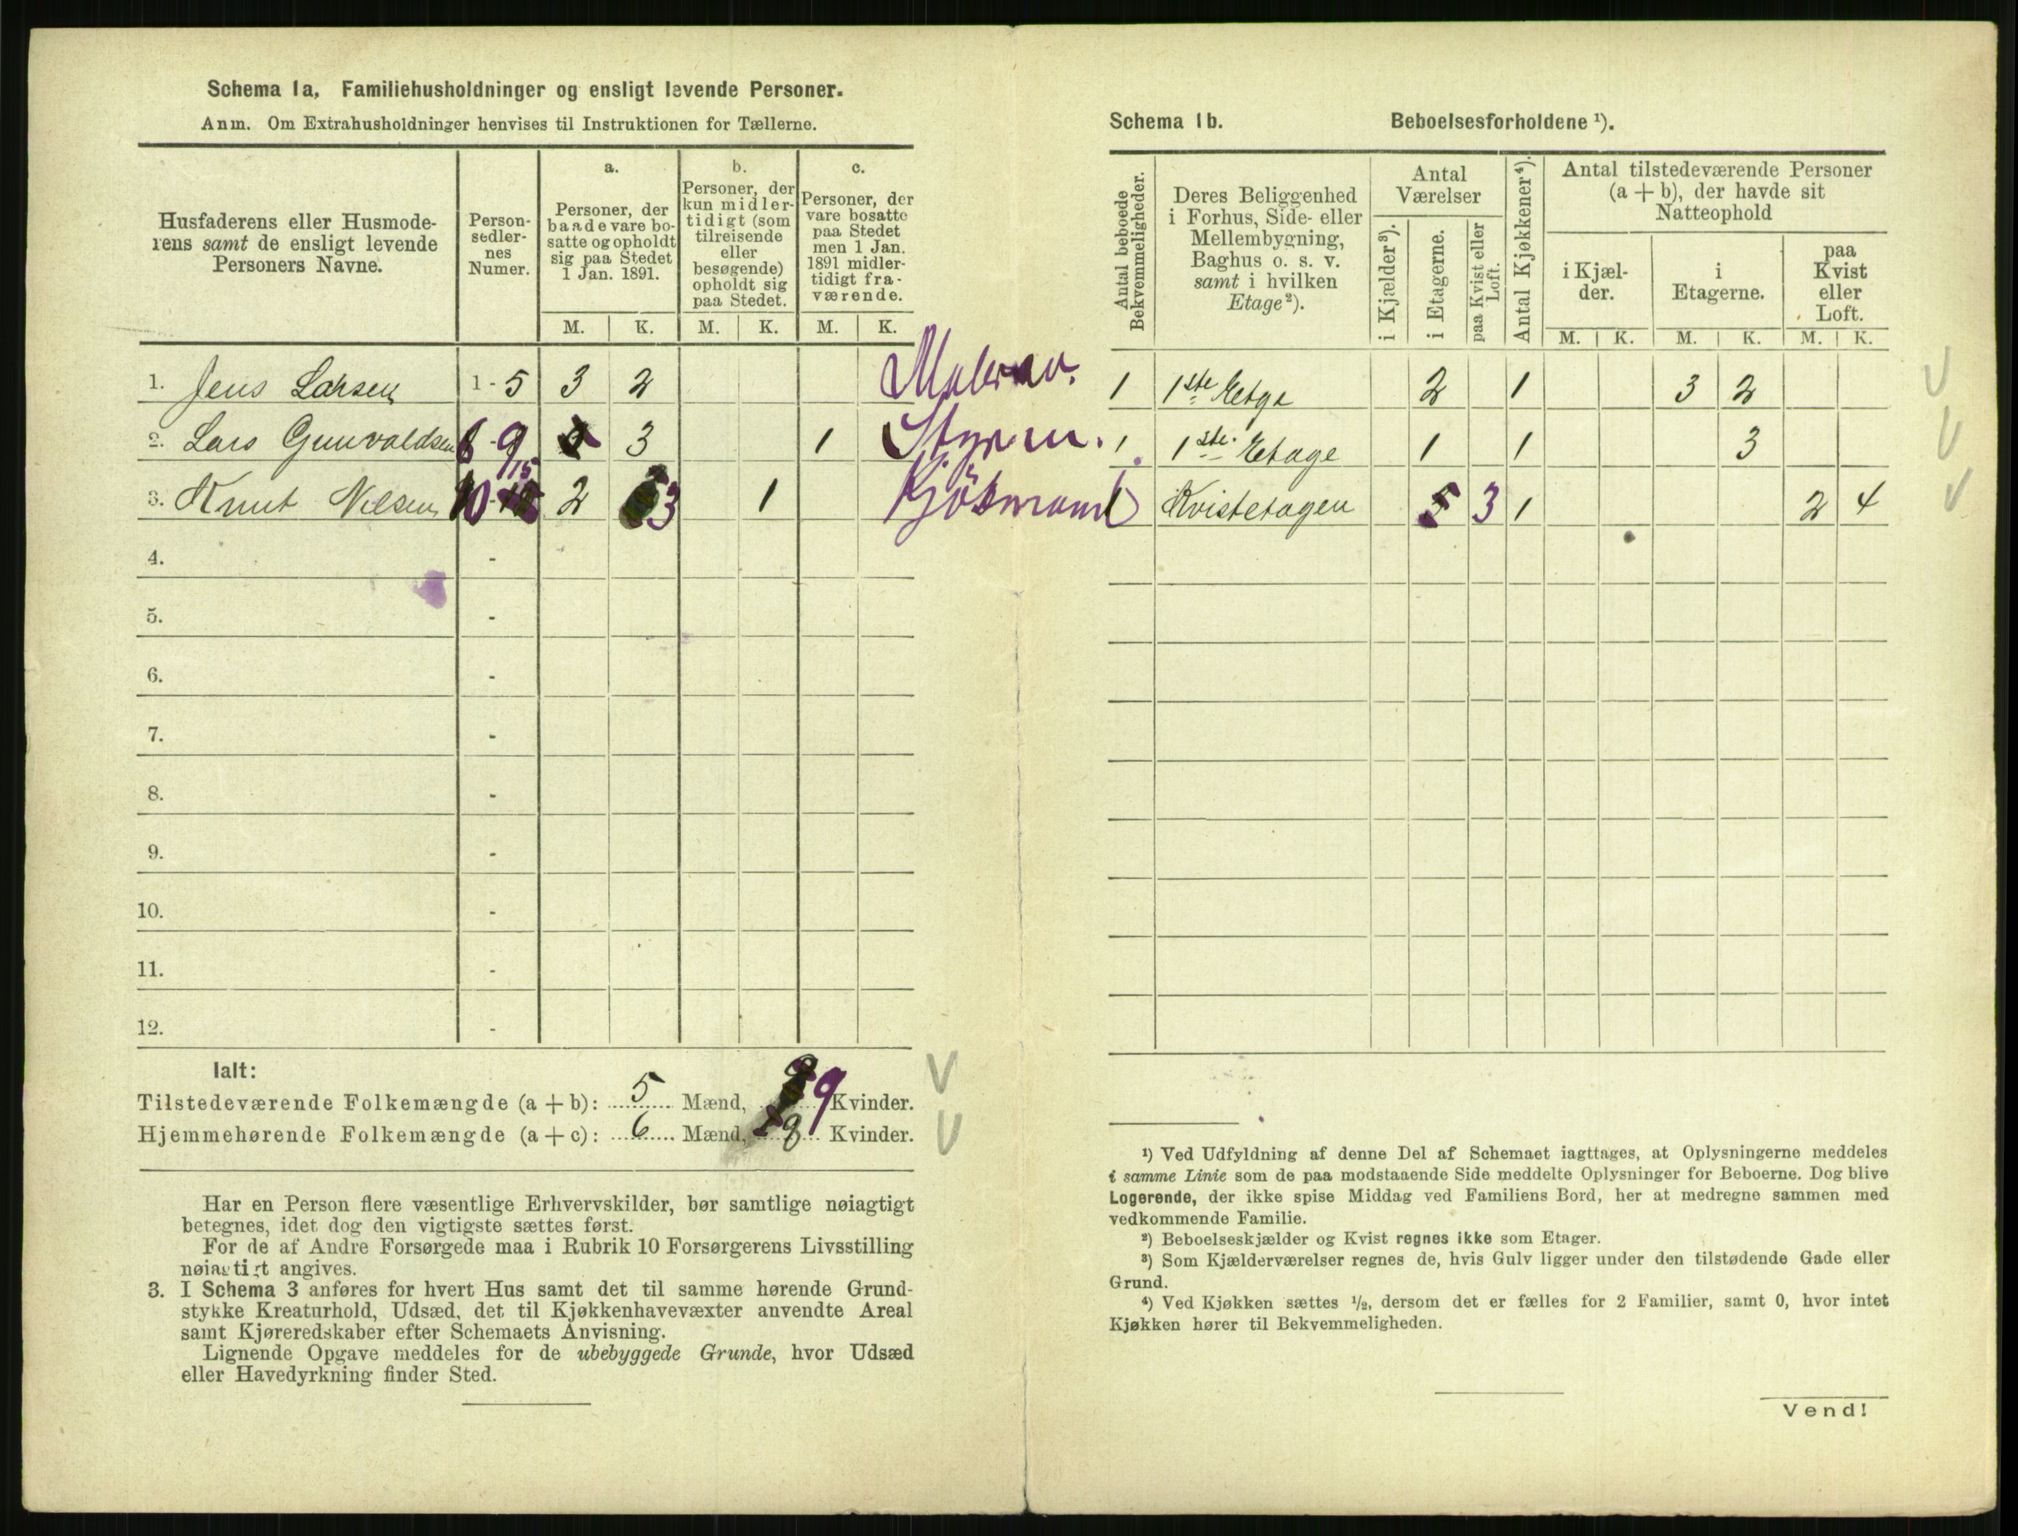 Schema 1a. Familiehusholdninger og ensligt levende Personer.
Anm. Om Extrahusholdninger henvises til Instruktionen for Tællerne.
Husfaderens eller Husmode-
rens samt de ensligt levende
Personers Navne.
Person-
sedler-
nes
Numer.
a.
Personer, der
baade vare bo-
satte og opholdt
sig paa Stedet
1 Jan. 1891.
M. K.
b.
Personer, der
kun midler-
tidigt (som
tilreisende
eller
besøgende)
opholdt sig
paa Stedet.
M. K.
c.
Personer, der
vare bosatte
paa Stedet
men 1 Jan.
1891 midler-
tidigt fra-
værende.
M. K.
1. Jens Larsen 1-5 3 2
2. Lars Gunvaldsen 6-9 3 1 Styrm.
3. Knut Nilsen 10-15 2 3 1 Kjøbmand
4. -
5. -
6. -
7. -
8. -
9. -
10. -
11. -
12. -
Ialt:
Tilstedeværende Folkemængde (a + b): 5 Mænd, 9 Kvinder.
Hjemmehørende Folkemængde (a + c): 6 Mænd, 8 Kvinder.
Har en Person flere væsentlige Erhvervskilder, bør samtlige nøiagtigt
betegnes, idet dog den vigtigste sættes først.
For de af Andre Forsørgede maa i Rubrik 10 Forsørgerens Livsstilling
nøiagtigt angives.
3. I Schema 3 anføres for hvert Hus samt det til samme hørende Grund-
stykke Kreaturhold, Udsæd, det til Kjøkkenhavevæxter anvendte Areal
samt Kjøreredskaber efter Schemaets Anvisning.
Lignende Opgave meddeles for de ubebyggede Grunde, hvor Udsæd
eller Havedyrkning finder Sted.
Schema 1b. Beboelsesforholdene ¹).
Antal beboede
Bekvemmeligheder.
Deres Beliggenhed
i Forhus, Side- eller
Mellembygning,
Baghus o. s. v.
samt i hvilken
Etage²).
Antal
Værelser
i Kjælder³).
i Etagerne.
paa Kvist eller
Loft.
Antal Kjøkkener⁴).
Antal tilstedeværende Personer
(a + b), der havde sit
Natteophold
i Kjæl-
der.
i
Etagerne.
paa
Kvist
eller
Loft.
M. K. M. K. M. K.
1 1ste Etge 2 1 3 2
1 1ste Etage 1 1 3
1 Kvistetagen 3 1 2 4
¹) Ved Udfyldning af denne Del af Schemaet iagttages, at Oplysningerne meddeles
i samme Linie som de paa modstaaende Side meddelte Oplysninger for Beboerne. Dog blive
Logerende, der ikke spise Middag ved Familiens Bord, her at medregne sammen med
vedkommende Familie.
²) Beboelseskjælder og Kvist regnes ikke som Etager.
³) Som Kjælderværelser regnes de, hvis Gulv ligger under den tilstødende Gade eller
Grund.
⁴) Ved Kjøkken sættes ½, dersom det er fælles for 2 Familier, samt 0, hvor intet
Kjøkken hører til Bekvemmeligheden.
Vend!